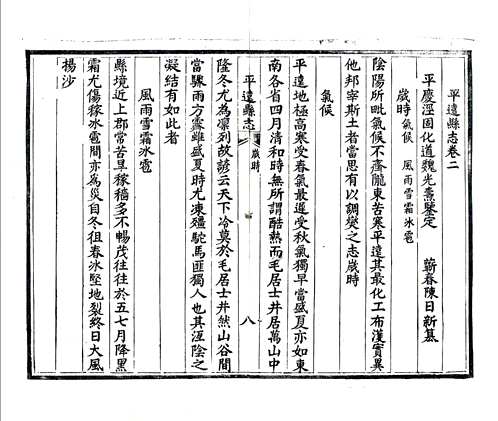 平遠縣志卷二
平慶涇固化道魏光燾鑒定 蘄春陳日新纂
歲時 氣候 風雨雪霜冰雹
陰陽所毗氣候不齊隴東苦寒平遠其最化工布濩實異
他邦宰斯土者當思有以調燮之志歲時
氣候
平遠地極高寒受春氣最遲受秋氣獨早當盛夏亦如東
南各省四月清和時無所謂酷熱而毛居士井居萬山中
平遠縣志 歲時 八
隆冬尤為凜列故諺云天下冷莫於毛居士井然山谷間
當驟雨方霽雖盛夏時尤凍殭駝馬匪獨人也其沍陰之
凝結有如此者
風雨雪霜冰雹
縣境近上郡常苦旱稼穡多不暢茂往往於五七月降黑
霜尤傷稼冰雹間亦為災自冬徂春冰堅地裂終日大風
揚沙